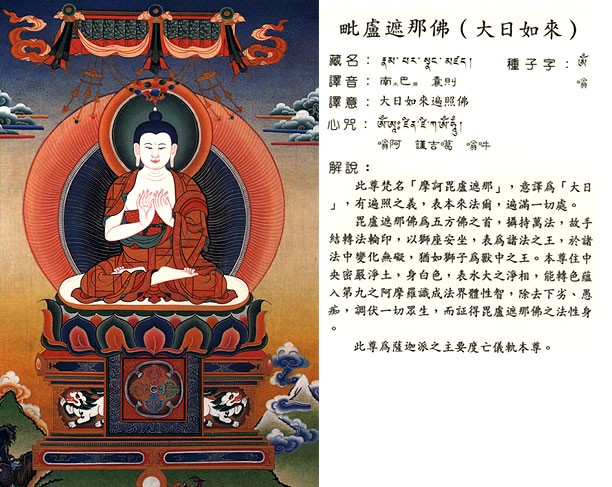 毗盧遮那佛(大日如來)
藏名:རྣམ་པར་སྣང་མཛད། 種子字:ཨོཾ
譯音:南巴 囊則 嗡
譯意:大日如來遍照佛
心咒:
嗡阿 謹古 嗡吽
解說:
此尊梵名「摩訶毘盧遮那」,意譯爲「大日
」,有遍照之義,表本來法爾,遍滿一切處。
毘盧遮那佛爲五方佛之首,攝持萬法,故手
結轉法輪印,以獅座安坐,表爲諸法之王,於諸
法中變化無礙,猶如獅子爲獸中之王。本尊住中
央密嚴淨土,身白色,表水大之淨相,能轉色蘊
入第九之阿摩羅識成法界體性智,除去下劣、愚
痴,調伏一切眾生,而証得毘盧遮那佛之法性身
。
此尊爲薩迦派之主要度亡儀軌本尊。